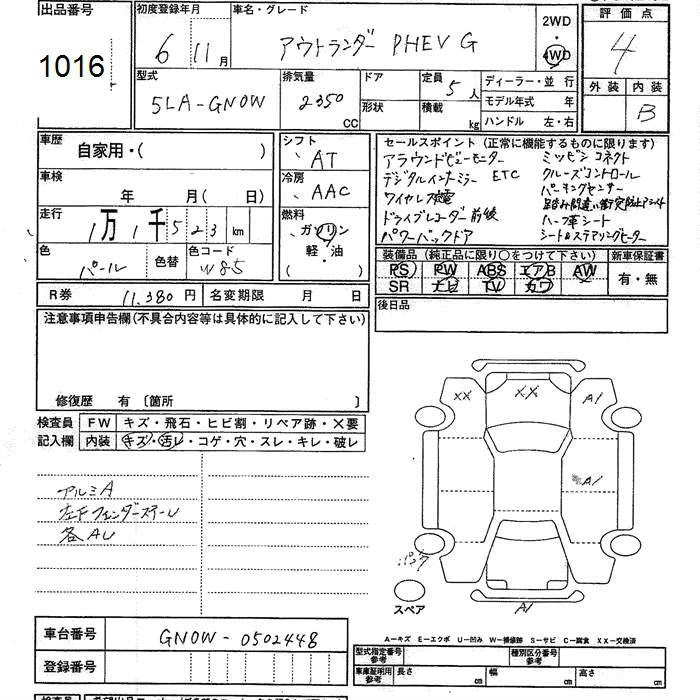 出品番号
1016
初度登録年月
6 11月
車名・グレード
アウトランダー PHEV G
2WD
4WD
評価点
4
外装 内装
B
型式
5LA-GN0W
排気量
2350
CC
ドア
形状
定員
5人
積載
kg
ディーラー・並行
モデル年式 年
ハンドル 左・右
車歴
自家用・( )
車検
年 月( 日)
走行
1万1千523km
色
パール
色替
色コード
W85
シフト
AT
冷房
AAC
燃料
ガソリン
軽・油
セールスポイント (正常に機能するものに限ります)
アラウンドビューモニター
デジタルインナーミラー ETC
ワイヤレス充電
ドライブレコーダー前後
パワーバックドア
ミツビシコネクト
クルーズコントロール
パーキングセンサー
踏み間違い衝突防止アシスト
ハーフ革シート
シート&ステアリングヒーター
装備品 (純正品に限り○をつけて下さい)
PS PW ABS エアB AW
SR ナビ TV カワ
新車保証書
有・無
R券 11,380円
名変期限 月 日
後日品
注意事項申告欄(不具合内容等は具体的に記入して下さい)
修復歴 有 〔箇所 〕
検査員
記入欄
FW キズ・飛石・ヒビ割・リペア跡・×要
内装 キズ・汚レ・コゲ・穴・スレ・キレ・破レ
アルミA
左Fフェンダーステー U
各AU
XX
XX
A1
A1
パンク
スペア
A1
A-キズ E-エクボ U-凹み W-補修跡 S-サビ C-腐食 XX-交換済
車台番号
GN0W-0502448
登録番号
型式指定番号
参考
種別区分番号
参考
車庫証明用
参考
長さ cm
幅 cm
高さ cm